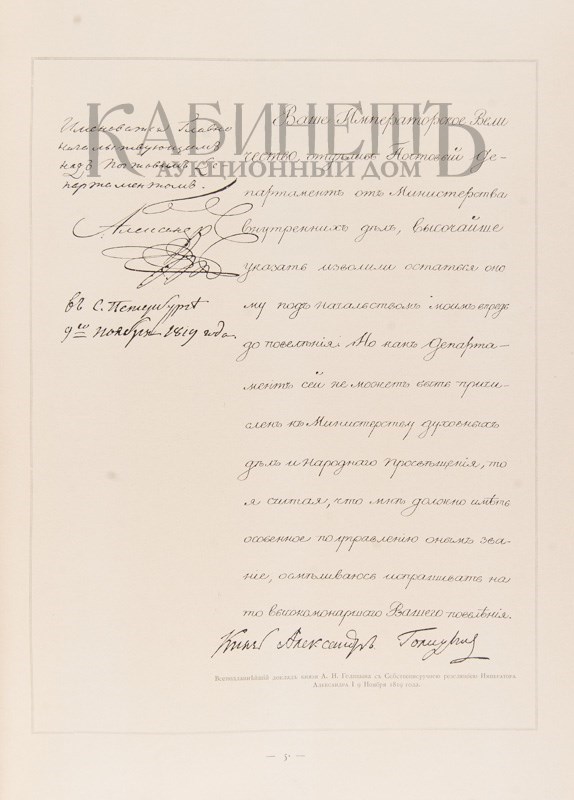 КАБИНЕТЪ
АУКЦИОННЫЙ ДОМ
Именоваться Главно
начальствующимъ
надъ Почтовымъ Де-
партаментомъ.
Александръ
въ С. Петербургѣ
9го Ноября 1819 года
Ваше Императорское Вели
чество, отдѣливъ Почтовый Де-
партаментъ отъ Министерства
Внутреннихъ дѣлъ, Высочайше
указать изволили остаться оно
му подъ начальствомъ моимъ впредь
до повелѣнія. Но какъ Департа-
ментъ сей не можетъ быть причи-
сленъ къ Министерству Духовныхъ
дѣлъ и Народнаго Просвѣщенія, то
я считая, что мнѣ должно имѣть
особенное по управленію онымъ зва-
ніе, осмѣливаюсь испрашивать на
то высокомонаршаго Вашего повелѣнія.
Князь Александръ Голицынъ
Всеподданнѣйшій докладъ князя А. Н. Голицына съ Собственноручною резолюціею Императора
Александра I 9 Ноября 1819 года.
— 5 —